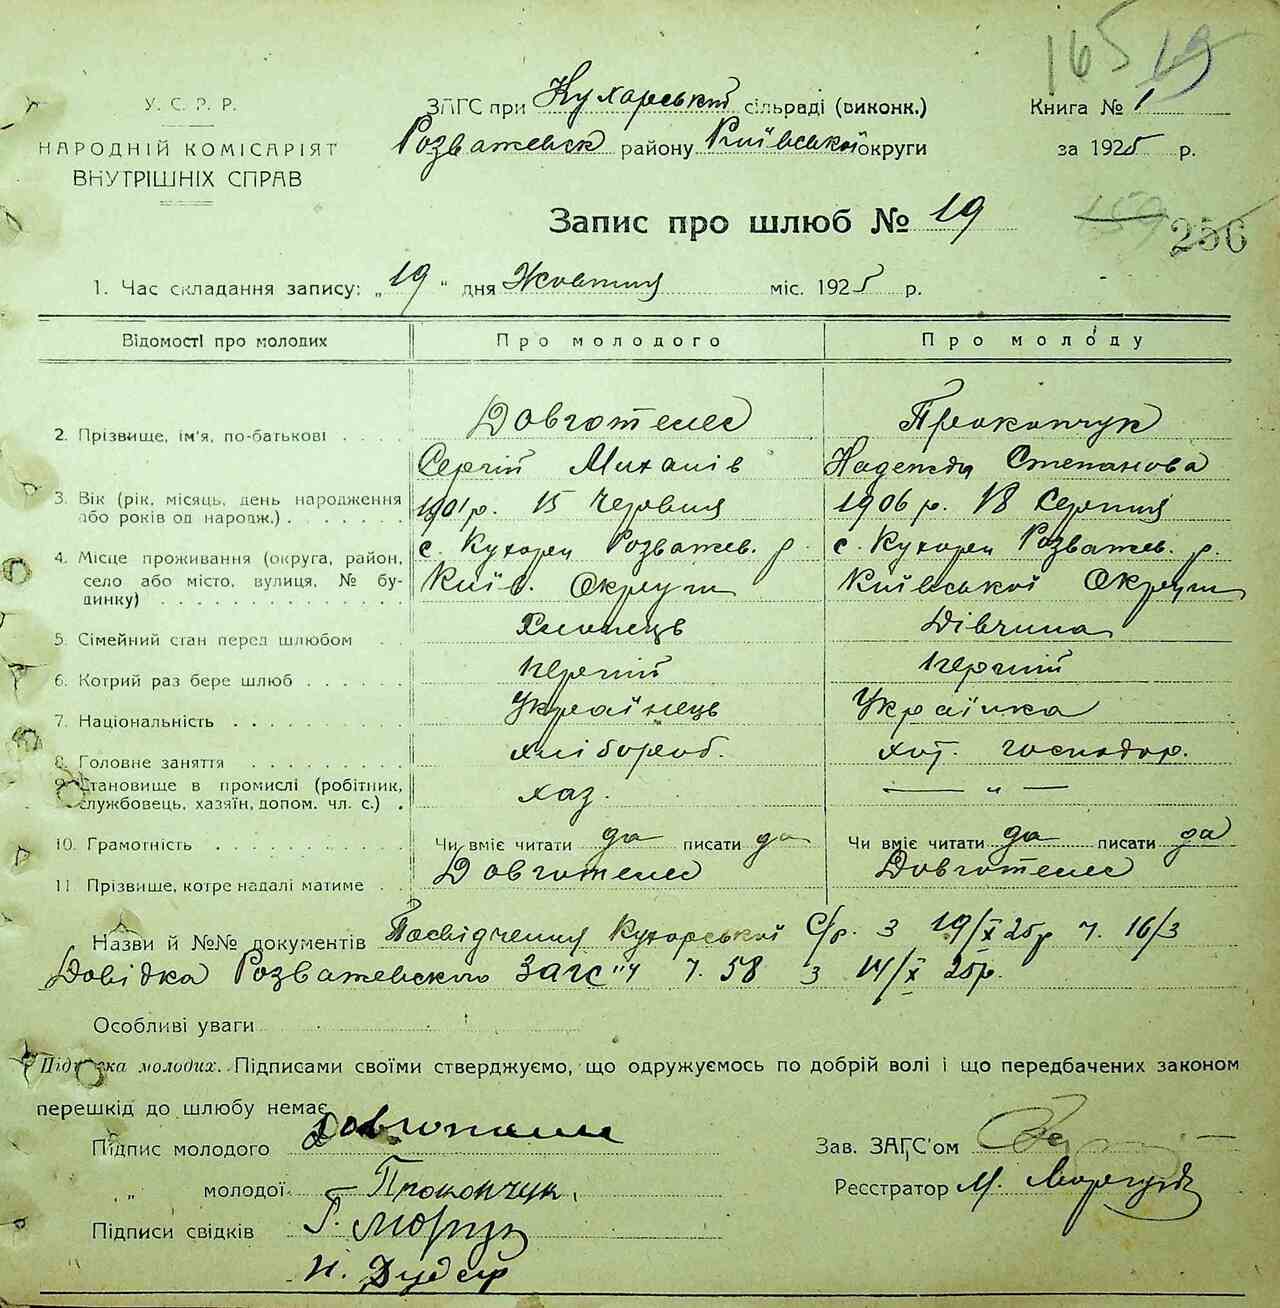 165 19
У. С. Р. Р.
НАРОДНІЙ КОМІСАРІЯТ
ВНУТРІШНІХ СПРАВ
ЗАГС при Кухарській сільраді (виконк.)
Розважевск району Київської округи
Книга № 1
за 1925 р.
Запис про шлюб № 19
159 256
1. Час складання запису: „19" дня Жовтня міс. 1925 р.
Відомості про молодих Про молодого Про молоду
2. Прізвище, ім'я, по-батькові Довготелес Прокопчук
Сергій Михалів Надежда Степанова
3. Вік (рік, місяць, день народження або років од нарорж.) 1901 р. 15 Червня 1906 р. 18 Серпня
4. Місце проживання (округа, район, село або місто, вулиця, № будинку) с. Кухари Розважев. р. Київ. Округи с. Кухари Розважев. р. Київської Округи
5. Сімейний стан перед шлюбом Хлопець Дівчина
6. Котрий раз бере шлюб перший перший
7. Національність Українець Українка
8. Головне заняття хлібороб. хот. господар.
9. Становище в промислі (робітник, службовець, хазяїн, допом. чл. с.) хаз. — „ —
10. Грамотність Чи вміє читати да писати да Чи вміє читати да писати да
11. Прізвище, котре надалі матиме Довготелес Довготелес
Назви й №№ документів Посвідчення Кухарської С/р. з 19/X 25р ч. 16/3
Довідка Розважевского ЗАГС"у ч. 58 з 14/X 25р.
Особливі уваги
Підписка молодих. Підписами своїми стверджуємо, що одружуємось по добрій волі і що передбачених законом
перешкід до шлюбу немає
Підпис молодого Довготелес
Зав. ЗАГС'ом
„ молодої Прокопчук
Реєстратор М.
Підписи свідків Г.
Н.